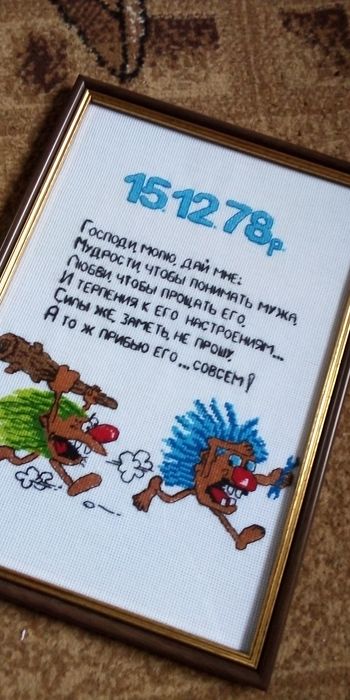 15.12.78р
Господи, молю, дай мне:
Мудрости, чтобы понимать мужа,
Любви, чтобы прощать его,
И терпения к его настроениям...
Силы же, заметь, не прошу,
А то ж прибью его... совсем!